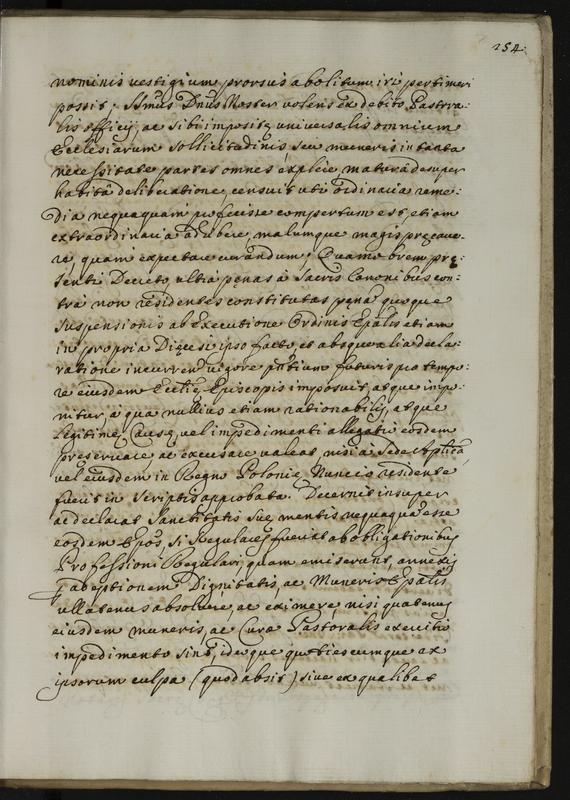 254.
nominis vestigium prorsus abolitum iri pertimeri
possit; SSmus Dnus Noster volens ex debito Pastora-
lis officij, ac sibi impositę universalis omnium
Ecclesiarum sollicitudinis seu muneris in tanta
necessitate partes omnes explere matura desuper
habita deliberatione, censuit ubi ordinaria reme:
dia nequaquam profecisse compertum est, etiam
extraordinaria adhibere, malumque magis pręcave-
re quam expectare curandum; Quamobrem prę:
senti Decreto, ultra pęnas à Sacris Canonibus con-
tra non residentes constitutas pęna quoque
suspensionis ab executione Ordinis Epalis etiam
in propria Dięcesi ipso facto, et absque alia decla-
ratione incurren vigore pntium futuris pro tempo-
re eiusdem Ecclię Episcopis imposuit, atque impo-
nitur, à qua nullius etiam rationabilis, atque
legitimę Causę, vel impedimenti allegatio eosdem
preservare, ac excusare valeat, nisi à Sede Aplica,
vel eiusdem in Regno Polonię Nuncio residente
fuerit in scriptis approbata. Decernit insuper
ac declarat Sanctitatis Suę mentis nequaqua esse
eosdem Epos, si Regulares fuerint ab obligationibus
Professioni Regulari, quam emiserunt, annexis
p adeptionem Dignitatis, ac Muneris Epalis
ullatenus absolvere, ac eximere nisi quatenus
eiusdem muneris, ac Curę Pastoralis exercitio
impedimento sint, ideoque quotiescumque ex
ipsorum culpa (quod absit) sive ex qualibet